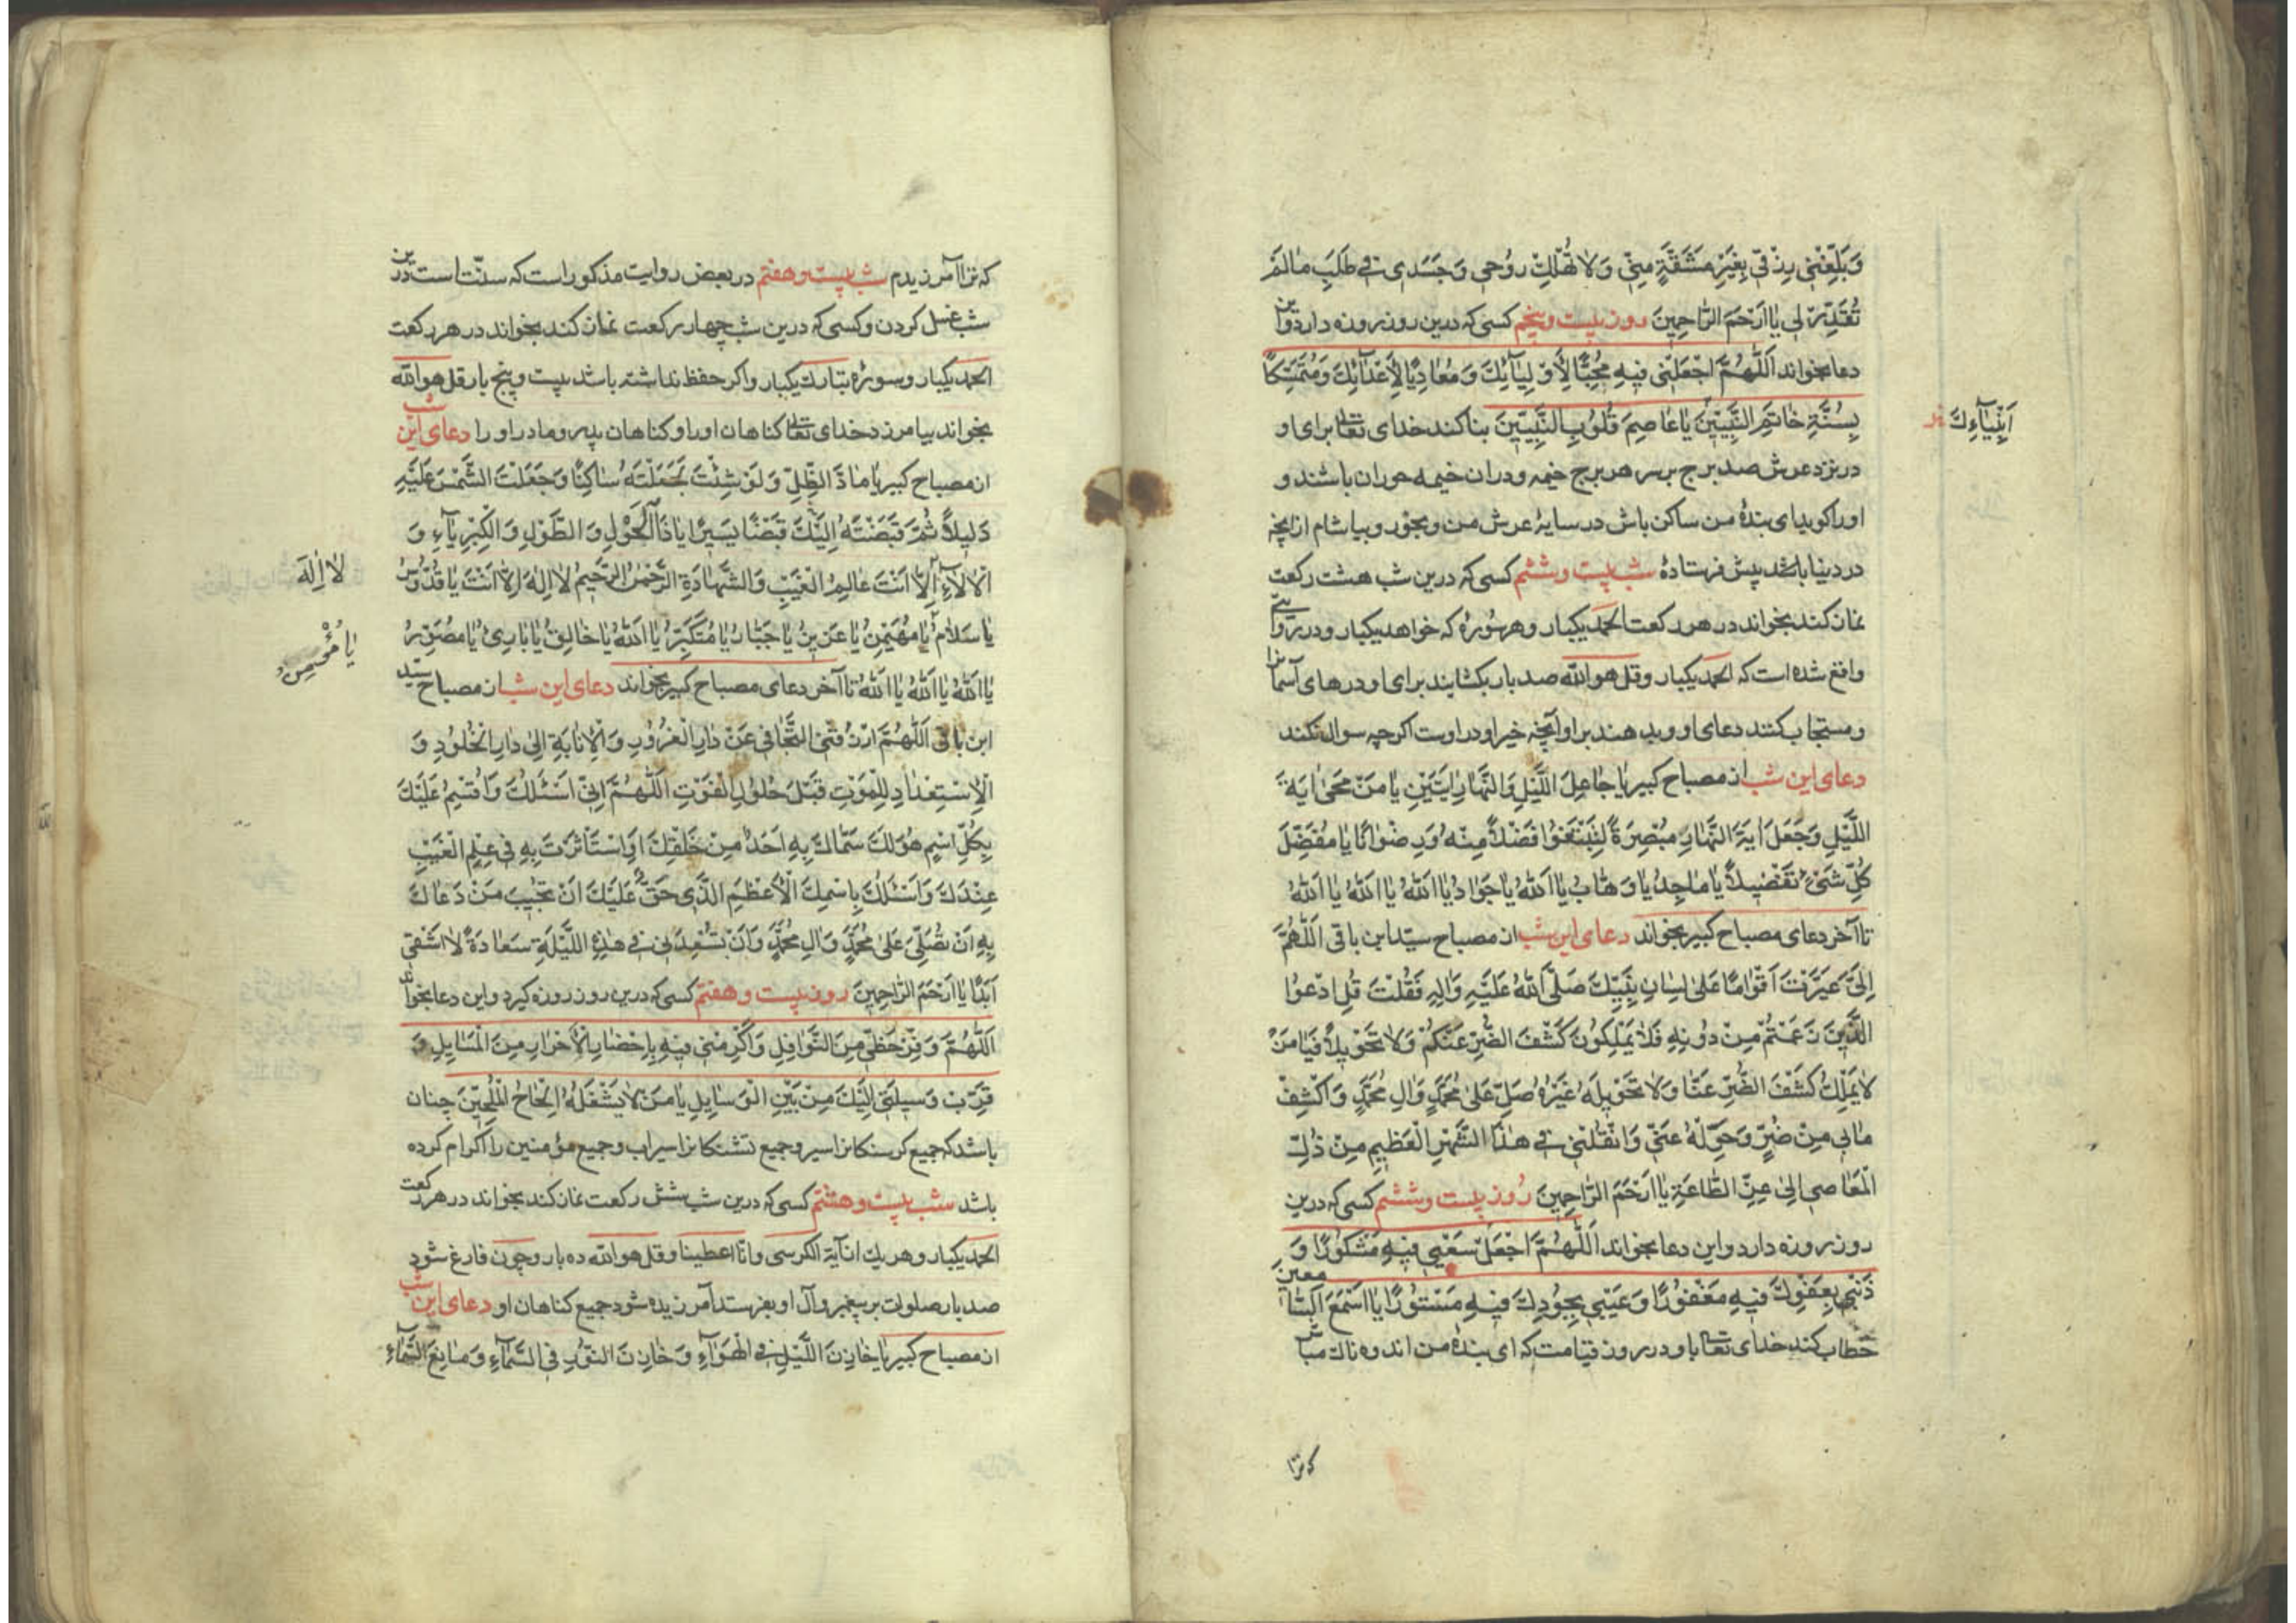 وَبَلِّغْنِي رِزْقِي بِغَيْرِ مَشَقَّةٍ مِنِّي وَلا تُهْلِكْ رُوحِي وَجَسَدِي فِي طَلَبِ مٰا لَمْ
تُقَدِّرْ لِي يٰا اَرْحَمَ الرّٰاحِمِينَ روز بیست وپنجم کسی که درین روز روزه دارد واین
دعا بخواند اَللّٰهُمَّ اجْعَلْنِي فِيهِ مُحِبًّا لِأَوْلِيٰآئِكَ وَمُعٰادِيًا لِأَعْدٰآئِكَ وَمُتَمَسِّكًا
بِسُنَّةِ خٰاتَمِ النَّبِيّينَ يٰا عٰاصِمَ قُلُوبِ النَّبِيّينَ بنا کند خدای تعالی برای او
اَنْبِيٰآءِكَ
در نزد عرش صد برج بر سر هر برج خیمه ودران خیمه حوران باشند و
اورا کوید ای بندۀ من ساکن باش در سایۀ عرش من وبخور وبیاشام از آنچه
در دنیا باشد پیش فرستادۀ شب بیست وششم کسی که درین شب هشت رکعت
نماز کند بخواند در هر رکعت الحمد یکبار وهر سوره که خواهد یکبار ودر روایتی
واقع شده است که الحمد یکبار وقل هو الله صد بار بکشایند برای او درهای آسمانرا
ومستجاب کنند دعای او وبدهند بر او آنچه خیر او در اوست اکرچه سوال نکند
دعای این شب از مصباح کبیر یٰا جٰاعِلَ اللَّيْلِ وَالنَّهٰارِ اٰيَتَيْنِ يٰا مَنْ مَحىٰ اٰيَةَ
اللَّيْلِ وَجَعَلَ اٰيَةَ النَّهٰارِ مُبْصِرَةً لِتَبْتَغُوا فَضْلاً مِنْهُ وَرِضْوٰانًا يٰا مُفَضِّلَ
كُلِّ شَيْءٍ تَفْضِيلاً يٰا مٰاجِدُ يٰا وَهّٰابُ يٰا اَللّٰهُ يٰا جَوٰادُ يٰا اَللّٰهُ يٰا اَللّٰهُ يٰا اَللّٰهُ
تا آخر دعای مصباح کبیر بخواند دعای این شب از مصباح سیّد ابن باقی اَللّٰهُمَّ
اِنَّكَ عَيَّرْتَ اَقْوٰامًا عَلىٰ لِسٰانِ نَبِيِّكَ صَلَّى اللّٰهُ عَلَيْهِ وَاٰلِهِ فَقُلْتَ قُلِ ادْعُوا
الَّذِينَ زَعَمْتُمْ مِنْ دُونِهِ فَلٰا يَمْلِكُونَ كَشْفَ الضُّرِّ عَنْكُمْ وَلٰا تَحْوِيلاً فَيٰا مَنْ
لٰا يَمْلِكُ كَشْفَ الضُّرِّ عَنّٰا وَلٰا تَحْوِيلَهُ غَيْرُهُ صَلِّ عَلىٰ مُحَمَّدٍ وَاٰلِ مُحَمَّدٍ وَاكْشِفْ
مٰا بِي مِنْ ضُرٍّ وَحَوِّلْهُ عَنِّي وَانْقُلْنِي فِي هٰذَا الشَّهْرِ الْعَظِيمِ مِنْ ذُلِّ
الْمَعٰاصِي اِلىٰ عِزِّ الطّٰاعَةِ يٰا اَرْحَمَ الرّٰاحِمِينَ روز بیست وششم کسی که درین
روز روزه دارد واین دعا بخواند اَللّٰهُمَّ اجْعَلْ سَعْيِي فِيهِ مَشْكُورًا وَ
ذَنْبِي بِعَفْوِكَ فِيهِ مَغْفُورًا وَعَيْبِي بِجُودِكَ فِيهِ مَسْتُورًا يٰا اَسْمَعَ السّٰامعين
خطاب کند خدای تعالی باو در روز قیامت که ای بندۀ من اندوهناک مباش
که ترا
که ترا آمرزیدم شب بیست وهفتم در بعض روایت مذکور است که سنّت است درین
شب غسل کردن وکسی که درین شب چهار رکعت نماز کند بخواند در هر رکعت
الحمد یکبار وسوره تبارک یکبار واکر حفظ نداشته باشد بیست وپنج بار قل هو الله
بخواند بیامرزد خدای تعالی کناهان اورا وکناهان پدر ومادر اورا دعای این شب
از مصباح کبیر یٰا مٰادَّ الظِّلِّ وَلَوْ شِئْتَ لَجَعَلْتَهُ سٰاكِنًا وَجَعَلْتَ الشَّمْسَ عَلَيْهِ
دَلِيلاً ثُمَّ قَبَضْتَهُ اِلَيْكَ قَبْضًا يَسِيرًا يٰا ذَا الْحَوْلِ وَالطَّوْلِ وَالْكِبْرِيٰآءِ وَ
الْاٰلٰآءِ اِلّٰا اَنْتَ عٰالِمُ الْغَيْبِ وَالشَّهٰادَةِ الرَّحْمٰنُ الرَّحِيمُ لٰا اِلٰهَ اِلّٰا اَنْتَ يٰا قُدُّوسُ
لٰا اِلٰهَ
يٰا سَلٰامُ يٰا مُهَيْمِنُ يٰا عَزِيزُ يٰا جَبّٰارُ يٰا مُتَكَبِّرُ يٰا اَللّٰهُ يٰا خٰالِقُ يٰا بٰارِئُ يٰا مُصَوِّرُ
يٰا مُؤْمِنُ
يٰا اَللّٰهُ يٰا اَللّٰهُ يٰا اَللّٰهُ تا آخر دعای مصباح کبیر بخواند دعای این شب از مصباح سیّد
ابن باقی اَللّٰهُمَّ ارْزُقْنِي التَّجٰافِيَ عَنْ دٰارِ الْغُرُورِ وَالْاِنٰابَةَ اِلىٰ دٰارِ الْخُلُودِ وَ
الْاِسْتِعْدٰادِ لِلْمَوْتِ قَبْلَ حُلُولِ الْفَوْتِ اَللّٰهُمَّ اِنِّي اَسْئَلُكَ وَاُقْسِمُ عَلَيْكَ
بِكُلِّ اسْمٍ هُوَ لَكَ سَمّٰاكَ بِهِ اَحَدٌ مِنْ خَلْقِكَ اَوِ اسْتَأْثَرْتَ بِهِ فِي عِلْمِ الْغَيْبِ
عِنْدَكَ وَاَسْئَلُكَ بِاسْمِكَ الْاَعْظَمِ الَّذِي حَقٌّ عَلَيْكَ اَنْ تُجِيبَ مَنْ دَعٰاكَ
بِهِ اَنْ تُصَلِّيَ عَلىٰ مُحَمَّدٍ وَاٰلِ مُحَمَّدٍ وَاَنْ تُسْعِدَنِي فِي هٰذِهِ اللَّيْلَةِ سَعٰادَةً لٰا اَشْقىٰ
اَبَدًا يٰا اَرْحَمَ الرّٰاحِمِينَ روز بیست وهفتم کسی که درین روز روزه کیرد واین دعا بخواند
اَللّٰهُمَّ وَفِّرْ حَظِّي مِنَ النَّوٰافِلِ وَاَكْرِمْنِي فِيهِ بِاِحْضٰارِ الْاَحْرٰارِ مِنَ الْمَسٰايِلِ وَ
قَرِّبْ وَسِيلَتِي اِلَيْكَ مِنْ بَيْنِ الْوَسٰايِلِ يٰا مَنْ لٰا يَشْغَلُهُ اِلْحٰاحُ الْمُلِحِّينَ چنان
باشد که جمیع کرسنکانرا سیر وجمیع تشنکانرا سیراب وجمیع مؤمنین را اکرام کرده
باشد شب بیست وهشتم کسی که درین شب شش رکعت نماز کند بخواند در هر رکعت
الحمد یکبار وهر یک از آیة الکرسی وانّا اعطینا وقل هو الله ده بار وچون فارغ شود
صد بار صلوات بر پیغمبر وآل او بفرستد آمرزیده شود جمیع کناهان او دعای این شب
از مصباح کبیر یٰا خٰازِنَ اللَّيْلِ فِي الْهَوٰآءِ وَخٰازِنَ النُّورِ فِي السَّمٰآءِ وَمٰانِعَ السَّمٰآءِ